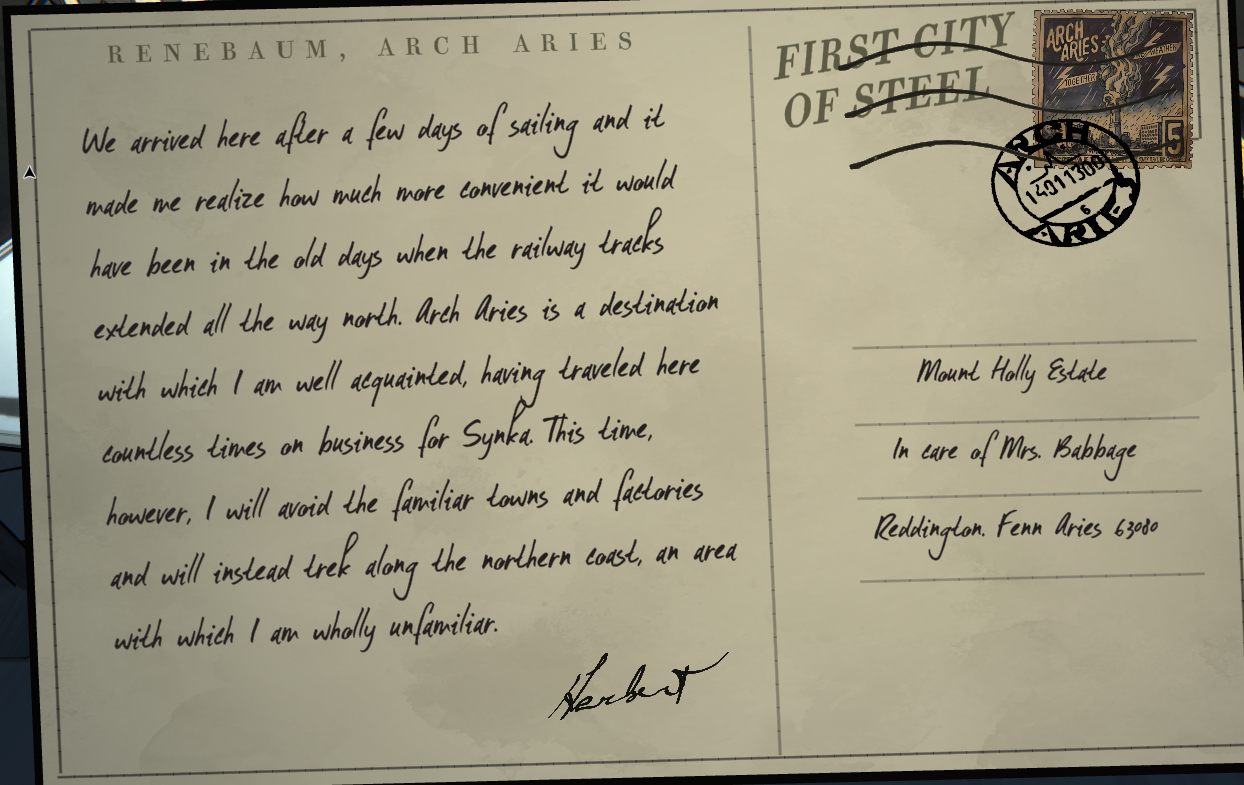 RENEBAUM, ARCH ARIES
We arrived here after a few days of sailing and it
made me realize how much more convenient it would
have been in the old days when the railway tracks
extended all the way north. Arch Aries is a destination
with which I am well acquainted, having traveled here
countless times on business for Synka. This time,
however, I will avoid the familiar towns and factories
and will instead trek along the northern coast, an area
with which I am wholly unfamiliar.
Herbert
FIRST CITY
OF STEEL
ARCH
ARIES
TOGETHER
WEATHER
5
ARCH
6
ARIES
Mount Holly Estate
In care of Mrs. Babbage
Reddington. Fenn Aries 63080